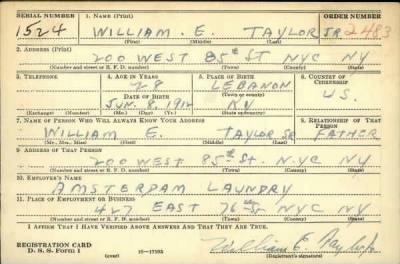 SERIAL NUMBER 1. NAME (Print) ORDER NUMBER
1524 WILLIAM E. TAYLOR JR 2483
(First) (Middle) (Last)
2. ADDRESS (Print)
200 WEST 85th ST NYC NY
(Number and street or R. F. D. number) (Town) (County) (State)
3. TELEPHONE 4. AGE IN YEARS 5. PLACE OF BIRTH 6. COUNTRY OF CITIZENSHIP
28 LEBANON
(Town or county)
DATE OF BIRTH U.S.
JUN. 8, 1912 KY
(Exchange) (Number) (Mo.) (Day) (Yr.) (State or country)
7. NAME OF PERSON WHO WILL ALWAYS KNOW YOUR ADDRESS 8. RELATIONSHIP OF THAT PERSON
WILLIAM E. TAYLOR SR FATHER
(Mr., Mrs., Miss) (First) (Middle) (Last)
9. ADDRESS OF THAT PERSON
200 WEST 85th ST. NYC NY
(Number and street or R. F. D. number) (Town) (County) (State)
10. EMPLOYER'S NAME
AMSTERDAM LAUNDRY
11. PLACE OF EMPLOYMENT OR BUSINESS
427 EAST 76 ST NYC NY
(Number and street or R. F. D. number) (Town) (County) (State)
I AFFIRM THAT I HAVE VERIFIED ABOVE ANSWERS AND THAT THEY ARE TRUE.
REGISTRATION CARD William E Taylor Jr
D. S. S. Form 1 (over) 16—17105 (Registrant's signature)